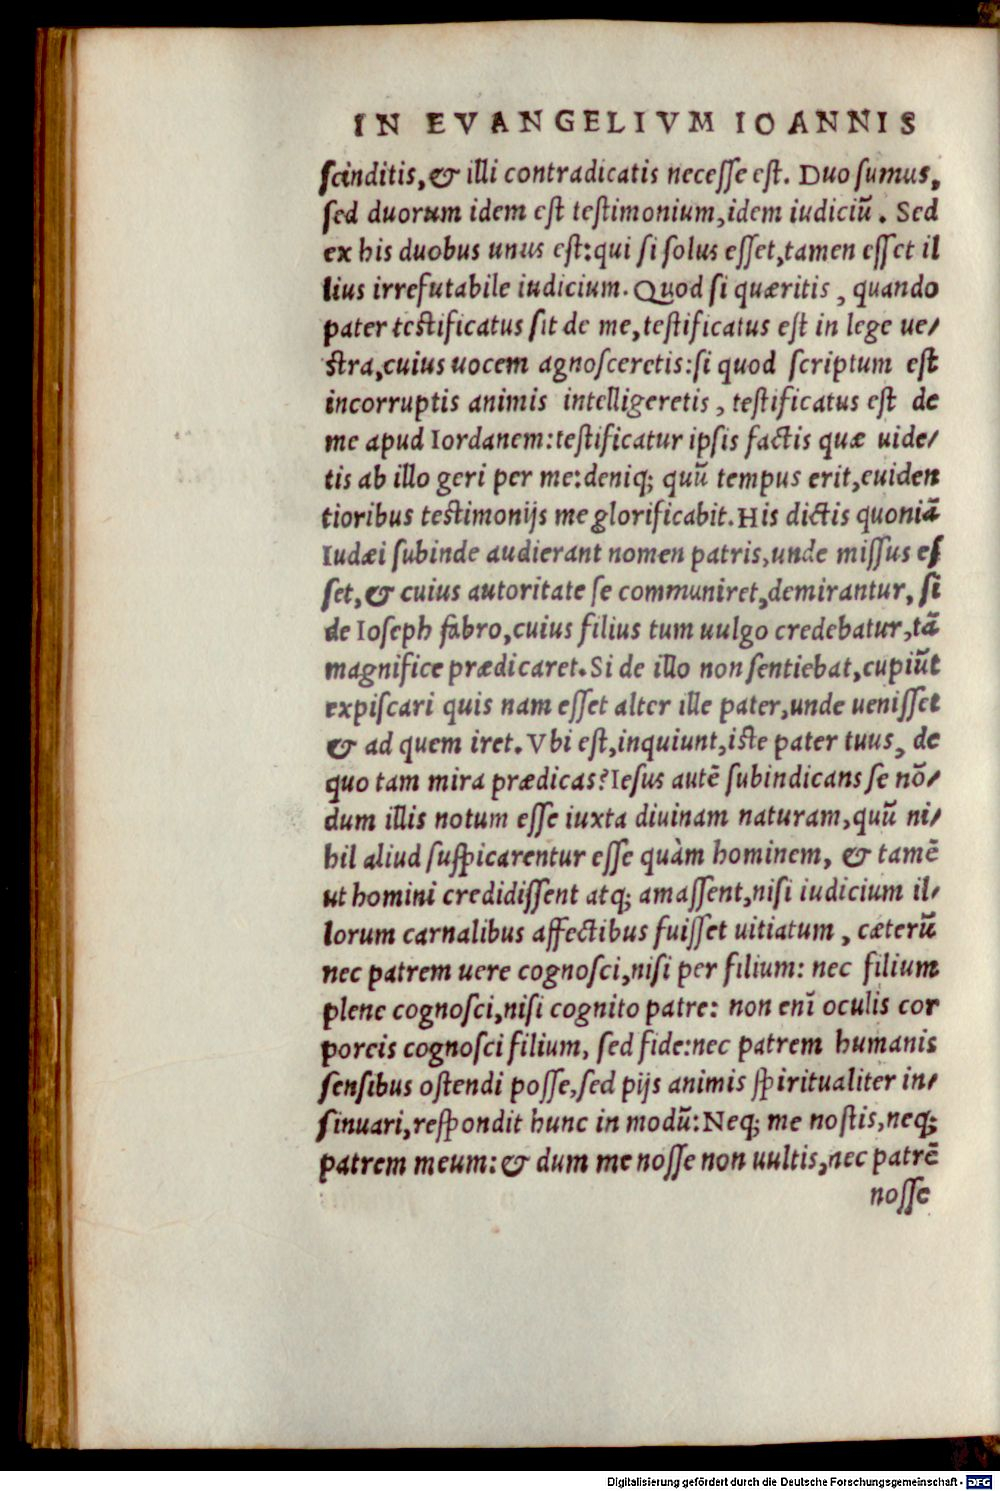 IN EVANGELIVM IOANNIS
scinditis, & illi contradicatis necesse est. Duo sumus,
sed duorum idem est testimonium, idem iudiciũ. Sed
ex his duobus unus est: qui si solus esset, tamen esset il
lius irrefutabile iudicium. Quod si quæritis, quando
pater testificatus sit de me, testificatus est in lege ue/
stra, cuius uocem agnosceretis: si quod scriptum est
incorruptis animis intelligeretis, testificatus est de
me apud Iordanem: testificatur ipsis factis quæ uide/
tis ab illo geri per me: deniq; quũ tempus erit, euiden
tioribus testimonijs me glorificabit. His dictis quoniã
Iudæi subinde audierant nomen patris, unde missus es
set, & cuius autoritate se communiret, demirantur, si
de Ioseph fabro, cuius filius tum uulgo credebatur, tã
magnifice prædicaret. Si de illo non sentiebat, cupiũt
expiscari quis nam esset alter ille pater, unde uenisset
& ad quem iret. Vbi est, inquiunt, iste pater tuus, de
quo tam mira prædicas? Iesus autẽ subindicans se nõ/
dum illis notum esse iuxta diuinam naturam, quũ ni/
hil aliud suspicarentur esse quàm hominem, & tamẽ
ut homini credidissent atq; amassent, nisi iudicium il/
lorum carnalibus affectibus fuisset uitiatum, cæterũ
nec patrem uere cognosci, nisi per filium: nec filium
plene cognosci, nisi cognito patre: non enĩ oculis cor
poreis cognosci filium, sed fide: nec patrem humanis
sensibus ostendi posse, sed pijs animis spiritualiter in/
sinuari, respondit hunc in modũ: Neq; me nostis, neq;
patrem meum: & dum me nosse non uultis, nec patrẽ
nosse
Digitalisierung gefördert durch die Deutsche Forschungsgemeinschaft - DFG